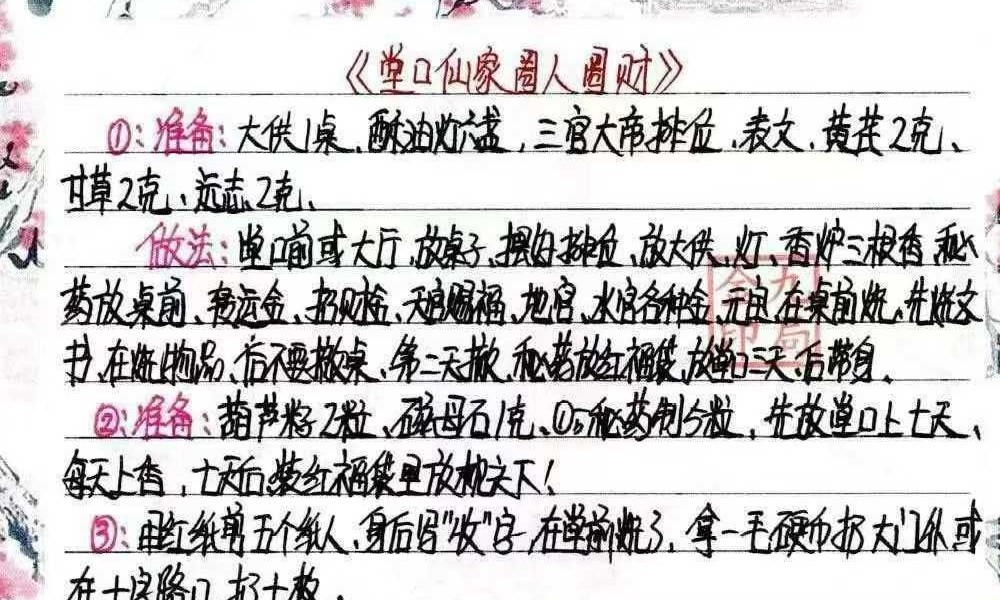 《堂口仙家圈人圈财》
①:准备:大供1桌、酥油灯六盏,三官大帝排位、表文、黄芪2克、
甘草2克、远志2克、
做法:堂口前或大厅、放桌子、摆好排位、放大供、灯、香炉三根香、秘
药放桌前、转运金、招财金、天官赐福、地官、水官各种金、元宝在桌前烧、先烧文
书、在烧物品、后不要撤桌、第二天撤、秘药放红福袋、放堂口三天后带身、
②:准备:葫芦籽2粒、磁母石1克、①の秘药制5粒,先放堂口上七天、
每天上香,七天后装红福袋里放枕头下!
③:用红纸剪五个纸人、身后写"收"字、在堂前烧了,拿一毛硬币扔大门外或
在十字路口扔十枚,